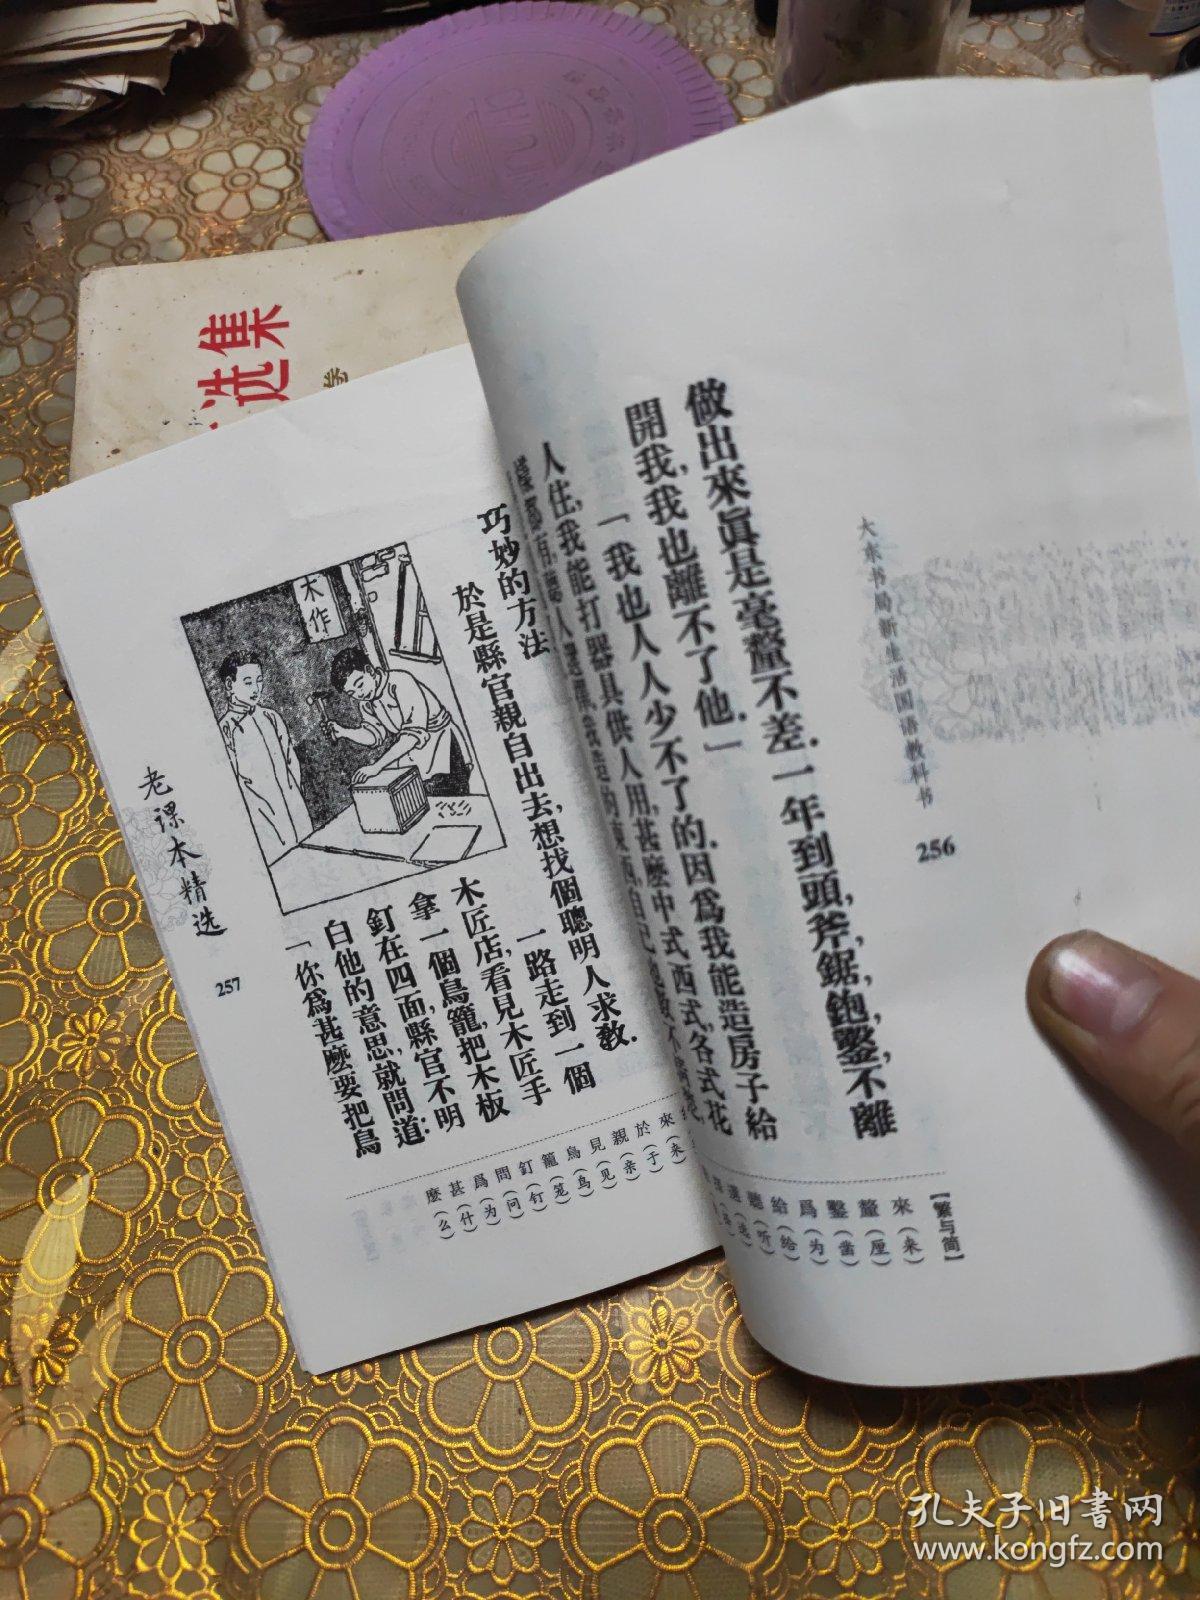 做出來眞是毫釐不差．一年到頭，斧，鋸，鉋，鑿，不離
開我，我也離不了他．」
「我也人人少不了的．因爲我能造房子給
人住，我能打器具供人用，甚麼中式西式，各式花
【繁与简】
來（来）
釐（厘）
鑿（凿）
爲（为）
給（给）
聽（听）
選（选）
大东书局新生活国语教科书
256
巧妙的方法
於是縣官親自出去，想找個聰明人求教．
一路走到一個
木匠店，看見木匠手
拿一個鳥籠，把木板
釘在四面，縣官不明
白他的意思，就問道：
「你爲甚麼要把鳥
木作
來（来）
於（于）
親（亲）
見（见）
鳥（鸟）
籠（笼）
釘（钉）
問（问）
爲（为）
甚（什）
麼（么）
老课本精选
257
选集
卷
孔夫子旧書网
www.kongfz.com